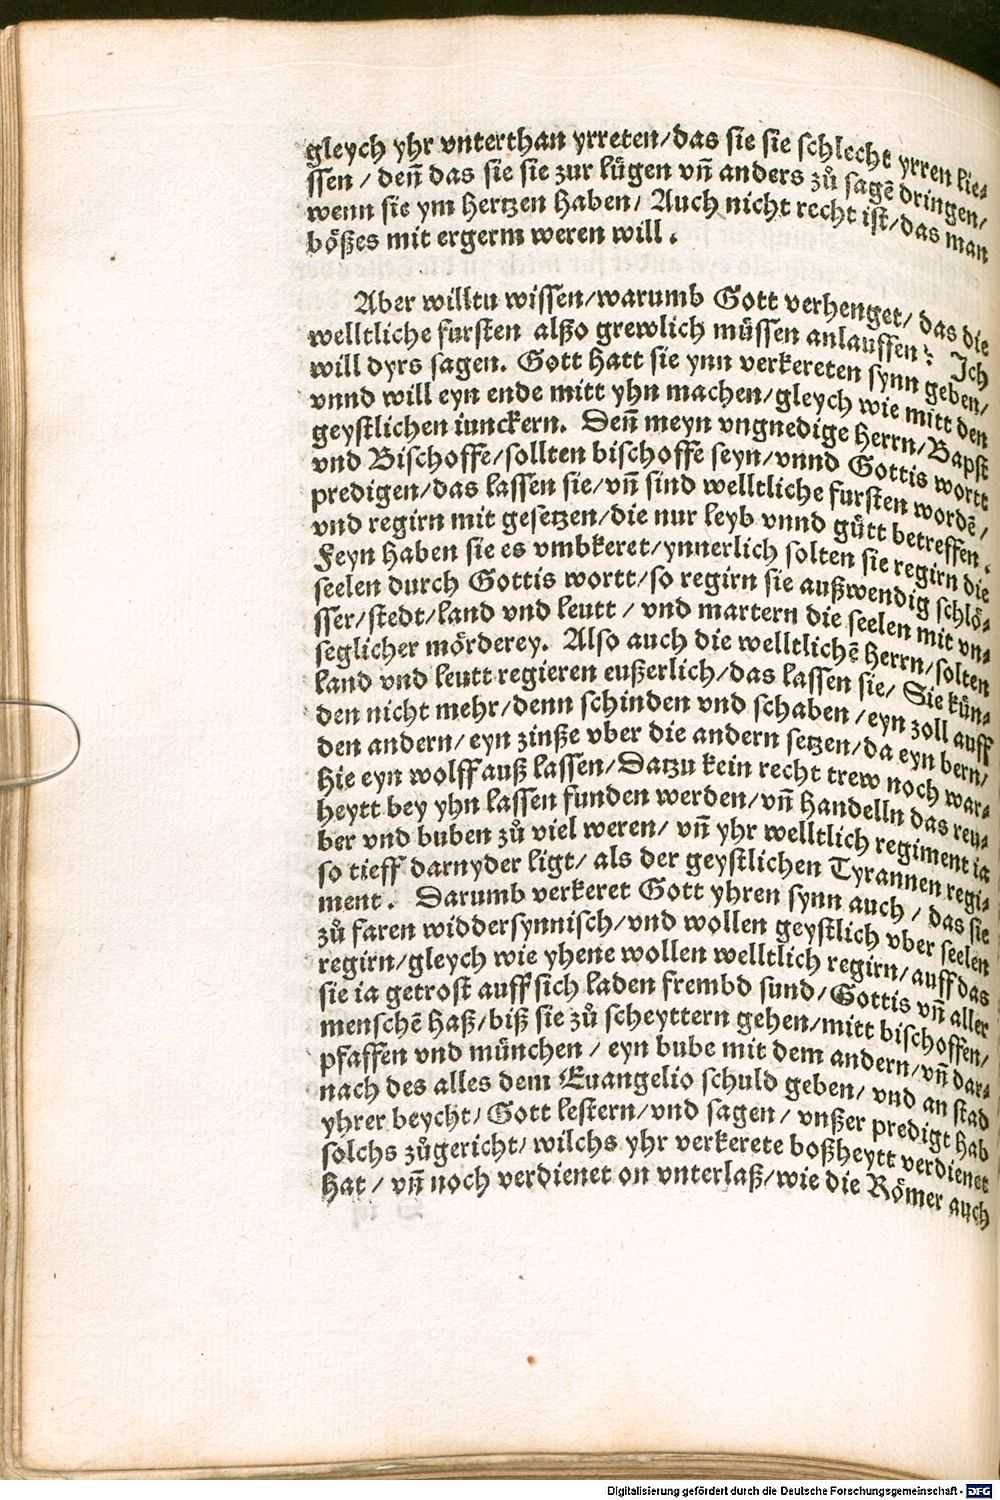 gleych yhr vnterthan yrreten/das sie sie schlecht yrren lie⸗
ssen / deñ das sie sie zur lügen vñ anders zů sagē dringen/
wenn sie ym hertzen haben/ Auch nicht recht ist/das man
bößes mit ergerm weren will.
Aber willtu wissen/warumb Gott verhenget/ das die
welltliche fursten alßo grewlich müssen anlauffen? Ich
will dyrs sagen. Gott hatt sie ynn verkereten synn geben/
vnnd will eyn ende mitt yhn machen/gleych wie mitt den
geystlichen iunckern. Deñ meyn vngnedige herrn/Bapst
vnd Bischoffe/sollten bischoffe seyn/vnnd Gottis wortt
predigen/das lassen sie/vñ sind welltliche fursten wordē/
vnd regirn mit gesetzen/die nur leyb vnnd gütt betreffen.
Feyn haben sie es vmbkeret/ynnerlich solten sie regirn die
seelen durch Gottis wortt/so regirn sie außwendig schlö⸗
sser/stedt/land vnd leutt / vnd martern die seelen mit vn⸗
seglicher mörderey. Also auch die welltlichē herrn/solten
land vnd leutt regieren eußerlich/das lassen sie/ Sie kün⸗
den nicht mehr/denn schinden vnd schaben /eyn zoll auff
den andern/ eyn zinße vber die andern setzen/da eyn bern/
hie eyn wolff auß lassen/Datzu kein recht trew noch war⸗
heytt bey yhn lassen funden werden/vñ handelln das reu⸗
ber vnd buben zů viel weren/ vñ yhr welltlich regiment ia
so tieff darnyder ligt/ als der geystlichen Tyrannen regi⸗
ment. Darumb verkeret Gott yhren synn auch / das sie
zů faren widdersynnisch/vnd wollen geystlich vber seelen
regirn/gleych wie yhene wollen welltlich regirn/auff das
sie ia getrost auff sich laden frembd sund/Gottis vñ aller
menschē haß/biß sie zů scheyttern gehen/mitt bischoffen/
pfaffen vnd münchen / eyn bube mit dem andern/vñ dar⸗
nach des alles dem Euangelio schuld geben/ vnd an stad
yhrer beycht/ Gott lestern/vnd sagen/ vnßer predigt hab
solchs zůgericht/ wilchs yhr verkerete boßheytt verdienet
hat / vñ noch verdienet on vnterlaß/wie die Römer auch
Digitalisierung gefördert durch die Deutsche Forschungsgemeinschaft - DFG